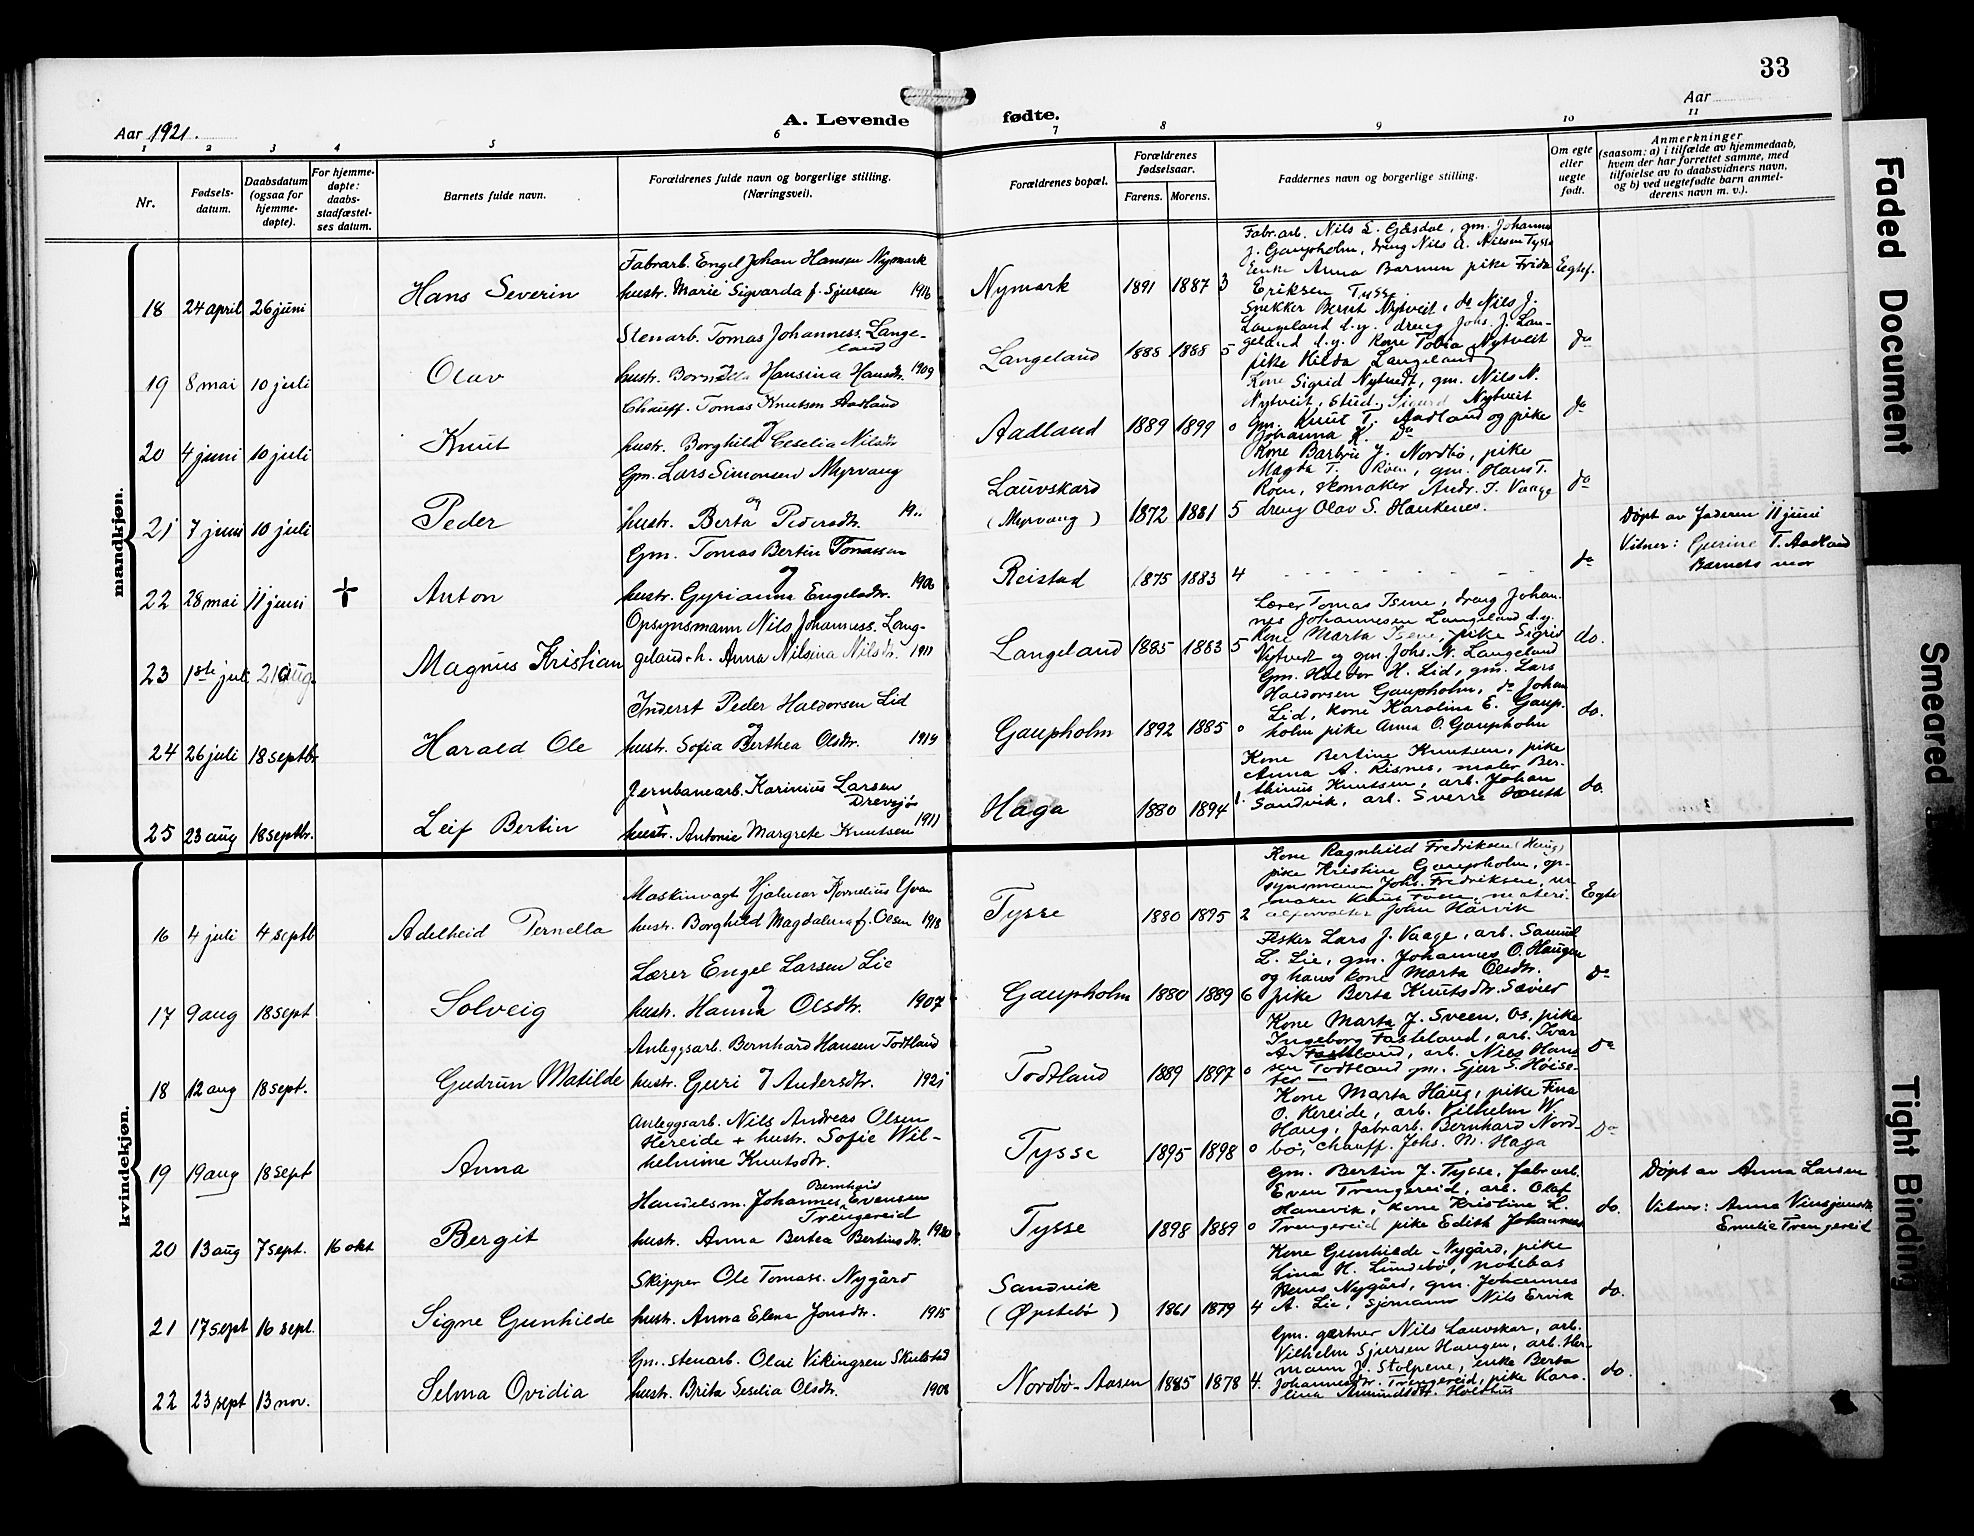 33
Aar 1921.
A. Levende fødte.
Aar
1 2 3 4 5 6 7 8 9 10 11
Nr.
Fødsels-
datum.
Daabsdatum
(ogsaa for
hjemme-
døpte).
For hjemme-
døpte:
daabs-
stadfæstel-
ses datum.
Barnets fulde navn.
Forældrenes fulde navn og borgerlige stilling.
(Næringsvei).
Forældrenes bopæl.
Forældrenes
fødselsaar.
Farens. Morens.
Faddernes navn og borgerlige stilling.
Om egte
eller
uegte
født.
Anmerkninger
(saasom: a) i tilfælde av hjemmedaab,
hvem der har forrettet samme, med
tilføielse av to daabsvidners navn,
og b) ved uegtefødte barn anmel-
derens navn m. v.).
mandkjøn.
18 24 april 26 juni Hans Severin
Fabrarb. Engel Johan Hansen Nymark
hustr. Marie Sigvarda f. Sjursen 1916
Nymark 1891 1887 3
Fabr.arb. Nils L. Gjesdal, gm. Johannes
J. Gaupholm, dreng Nils A. Nilsen Tysse
Enke Anna Barmen pike Frida
Eriksen Tysse.
Egtef.
19 8 mai 10 juli Olav
Stenarb. Tomas Johanness. Lange-
land
hustr. Hansina Hansdr. 1909
Langeland 1888 1888 5
Snekker Bernt Nytveit, do Nils J.
Langeland d.y. dreng Johs. J. Lan-
geland d.y. Kone Tobia Nytveit
pike Hilda Langeland
do
20 4 juni 10 juli Knut
Chauff. Tomas Knutsen Aadland
og
hustr. Borghild Ceselia Nilsdr
Aadland 1889 1899 0
Kone Sigrid Nytvedt, gm. Nils N.
Nytveit, stud. Sigurd Nytveit
gm. Knut T. Aadland og pike
Johanna K. do
do
21 7 juni 10 juli Peder
Gm. Lars Simonsen Myrvang
og
hustr. Berta Pedersdtr. 19..
Lauvskard
(Myrvang) 1872 1881 5
Kone Barbru J. Nordbø, pike
Magda T. Roen, gm. Hans T.
Roen, skomaker Andr. T. Vaage
dreng Olav S. Haukenes.
do
22 28 mai 11 juni † Anton
Gm. Tomas Bertin Tomassen
og
hustr. Gyrianna Engelsdtr. 1906
Reistad 1875 1883 4
do
Døpt av faderen 11 juni
Vitner: Gurine T. Aadland
Barnets mor
23 1ste juli 21 aug. Magnus Kristian
Opsynsmann Nils Johanness. Lang-
geland + h. Anna Nilsina Nilsdtr. 1911
Langeland 1885 1883 5
Lærer Tomas Isene, dreng Johan-
nes Johannesen Langeland d.y.
Kone Marta Isene, pike Sigrid
Nytvedt og gm. Johs. N. Langeland
do.
24 26 juli 18 septbr Harald Ole
Inderst Peder Haldorsen Lid
og
hustr. Sofia Berthea Olsdtr. 1919
Gaupholm 1892 1885 0
Gm. Haldor H. Lid, gm. Lars
Haldorsen Gaupholm, do Johan
Lid, kone Karolina E. Gaup-
holm pike Anna O. Gaupholm
do.
25 23 aug 18 septbr. Leif Bertin
Jernbanearb. Karinius Larsen
Drevsjø
hustr. Antonie Margrete Knutsen 1911
Haga 1880 1894 1.
Kone Bertine Knutsen, pike
Anna A. Risnes, maler Ber-
thinius Knutsen, arb. Johan
Sandvik, arb. Sverre
do.
kvindekjøn.
16 4 juli 4 septb Adelheid Pernella
Maskinvagt Hjalmar Kornelius
hustr. Borghild Magdalena f. Olsen 1918
Tysse 1880 1895 2
Kone Ragnhild Fredriksen (Haug)
pike Kristine Gaupholm, op-
synsmann Johs. Fredriksen, ur-
maker Knut materi-
alforvalter John Hårvik
Egte
17 9 aug 18 sept Solveig
Lærer Engel Larsen Lie
og
hustr. Hanna Olsdtr. 1907
Gaupholm 1880 1889 6
Fisker Lars J. Vaage, arb. Samuel
L. Lie, gm. Johannes O. Haugen
og hans kone Marta Olsdtr.
pike Berta Knutsdtr. Sævier
do
18 12 aug 18 sept. Gudrun Matilde
Anleggsarb. Bernhard Hansen Todtland
hustr. Guri J Andersdtr. 1921
Todtland 1889 1897 0
Kone Marta J. Sveen, Os, pike
Ingeborg Fasteland, arb. Ivar
A. Fasteland, arb. Nils Han-
sen Todtland gm. Sjur S. Høise-
ter
do
19 19 aug 18 sept Anna
Anleggsarb. Nils Andreas Olsen
Hereide + hustr. Sofie Wil-
helmine Knutsdtr.
Tysse 1895 1898 0
Kone Marta Haug, pike Fina
O. Hereide, arb. Vilhelm W.
Haug, fabrarb. Bernhard Nord-
bø, chauff. Johs. M. Haga
Do
20 13 aug 7 sept. 16 okt Bergit
Handelsm. Johannes Bernhard Evensen
Trengereid
hustr. Anna Bertea Bertinsdtr. 1920
Tysse 1898 1889 0
Gm. Bertin J. Tysse, fabrarb.
Even Trengereid, arb. Olaf
Hanevik, kone Kristine L.
Trengereid pike Edith Johannes
do.
Døpt av Anna Larsen
Vitner: Anna
Emelie Trengereid
21 17 sept 16 sept. Signe Gunhilde
Skipper Ole Tomass. Nygård
hustr. Anna Elena Jonsdtr. 1915
Sandvik
(Øpstebø) 1861 1879 4
Kone Gunhilde Nygård, pike
Lina H. Lundebø, notebas
Rems Nygård, gm. Johannes
A. Lie, sjømann Nils Ervik
do.
22 23 sept 13 nov. Selma Ovidia
Gm. stenarb. Olai Vikingsen Skulstad
hustr. Brita Seselia Olsdtr. 1908
Nordbø-Aasen 1885 1878 4.
Gm. gartner Nils Lauvskar, arb.
Vilhelm Sjursen Haugen, arb. Her-
mann J. Stolpene, enke Berta
Johannesdtr. Trengereid, pike Karo-
lina Amundsdtr. Holdhus
do.
Faded Document
Smeared
Tight Binding